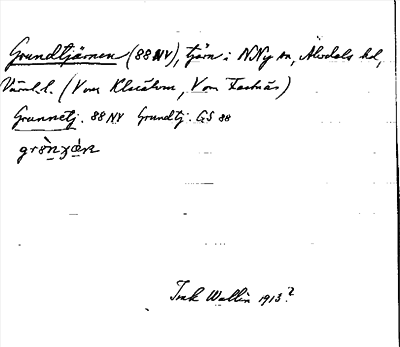 Grundtjärnen (88 NV), tjärn i N. Ny sn, Älvdals hd,
Värml. l. (V om Klarälven, V om Fastnäs)
Grunnetj. 88 NV Grundtj. GS 88
Isak Wallin 1913?